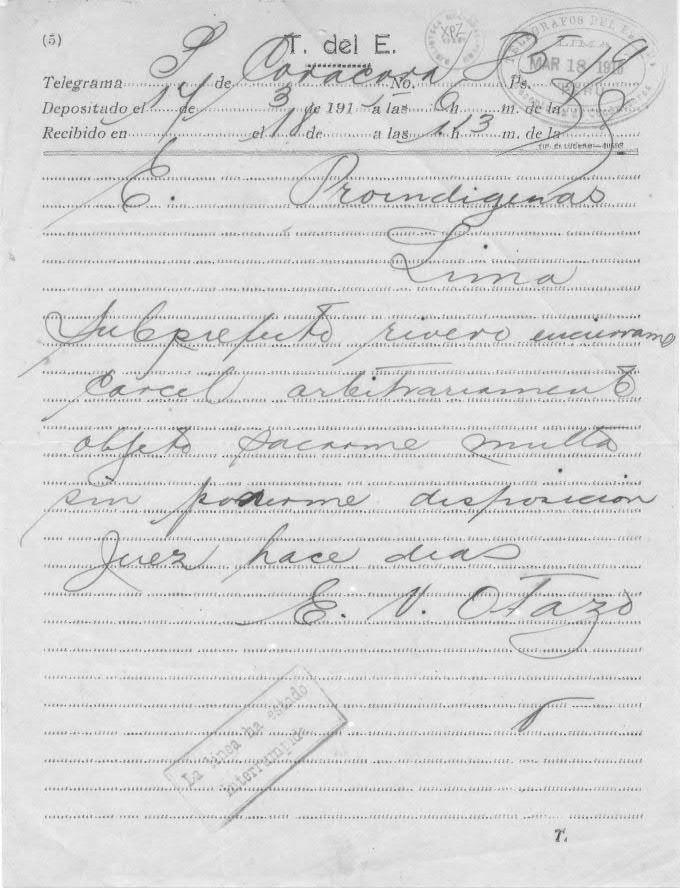 (5)
T. del E.
TELEGRAFOS DEL
LIMA
MAR 18 1919
Telegrama P de Coracora No. Ps.
Depositado el 17 de 3 de 191 a las h m. de la
Recibido en el 18 de a las h 3 m. de la
TIP. EL LUCERO
E. Proindigenas
Lima
Subprefecto rivero encierrame
carcel arbitrariamente
objeto sacarme multa
sin ponerme disposicion
Juez hace dias
E. V. Otazo
La línea ha estado
interrumpida
T.